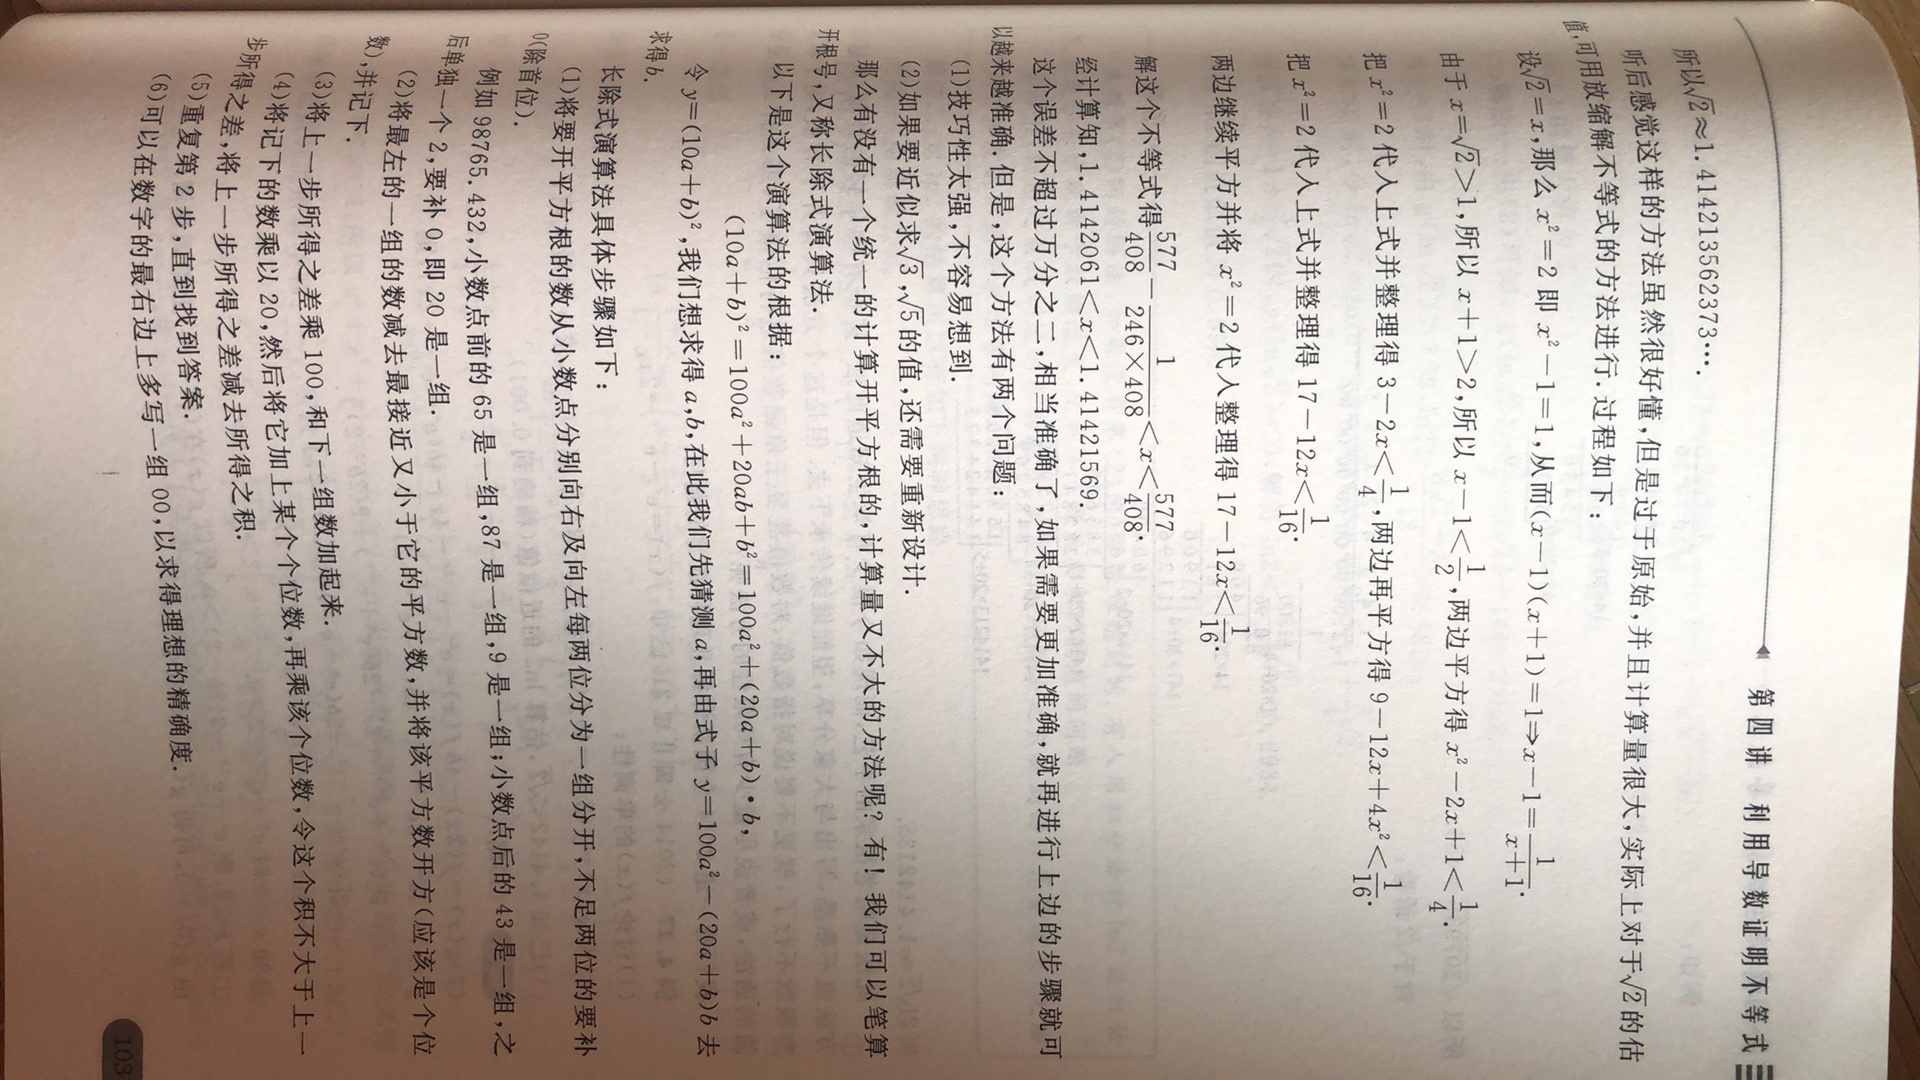 第四讲 利用导数证明不等式
所以√2≈1.414213562373….
听后感觉这样的方法虽然很好懂,但是过于原始,并且计算量很大,实际上对于√2的估
值,可用放缩解不等式的方法进行.过程如下:
设√2=x,那么 x²=2 即 x²-1=1,从而(x-1)(x+1)=1⇒x-1=1/(x+1).
由于 x=√2>1,所以 x+1>2,所以 x-1<1/2,两边平方得 x²-2x+1<1/4.
把 x²=2 代入上式并整理得 3-2x<1/4,两边再平方得 9-12x+4x²<1/16.
把 x²=2 代入上式并整理得 17-12x<1/16.
两边继续平方并将 x²=2 代入整理得 17-12x<1/16.
解这个不等式得577/408-1/(246×408)<x<577/408.
经计算知,1.4142061<x<1.41421569.
这个误差不超过万分之二,相当准确了,如果需要更加准确,就再进行上边的步骤就可
以越来越准确.但是,这个方法有两个问题:
(1)技巧性太强,不容易想到.
(2)如果要近似求√3,√5的值,还需要重新设计.
那么有没有一个统一的计算开平方根的,计算量又不大的方法呢?有!我们可以笔算
开根号,又称长除式演算法.
以下是这个演算法的根据:
(10a+b)²=100a²+20ab+b²=100a²+(20a+b)·b,
令 y=(10a+b)²,我们想求得 a,b,在此我们先猜测 a,再由式子 y=100a²-(20a+b)b 去
求得 b.
长除式演算法具体步骤如下:
(1)将要开平方根的数从小数点分别向右及向左每两位分为一组分开,不足两位的要补
0(除首位).
例如 98765.432,小数点前的 65 是一组,87 是一组,9 是一组;小数点后的 43 是一组,之
后单独一个 2,要补 0,即 20 是一组.
(2)将最左的一组的数减去最接近又小于它的平方数,并将该平方数开方(应该是个位
数),并记下.
(3)将上一步所得之差乘 100,和下一组数加起来.
(4)将记下的数乘以 20,然后将它加上某个个位数,再乘该个位数,令这个积不大于上一
步所得之差,将上一步所得之差减去所得之积.
(5)重复第 2 步,直到找到答案.
(6)可以在数字的最右边上多写一组 00,以求得理想的精确度.
103